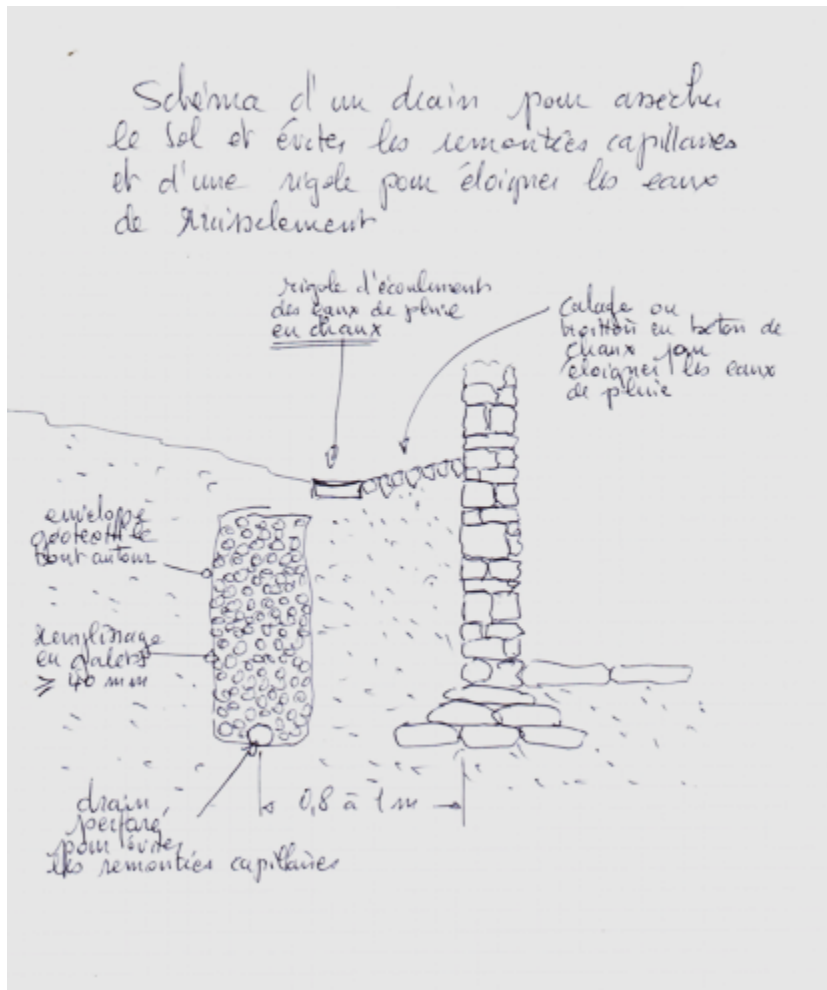 Schéma d'un drain pour assécher
le sol et éviter les remontées capillaires
et d'une rigole pour éloigner les eaux
de ruissellement
rigole d'écoulements
des eaux de pluie
en chaux
calade ou
trottoir en beton de
chaux pour
éloigner les eaux
de pluie
enveloppe
géotextile
tout autour
Remplissage
en galets
≥ 40 mm
drain
perforé
pour éviter
les remontées capillaires
0,8 à 1 m